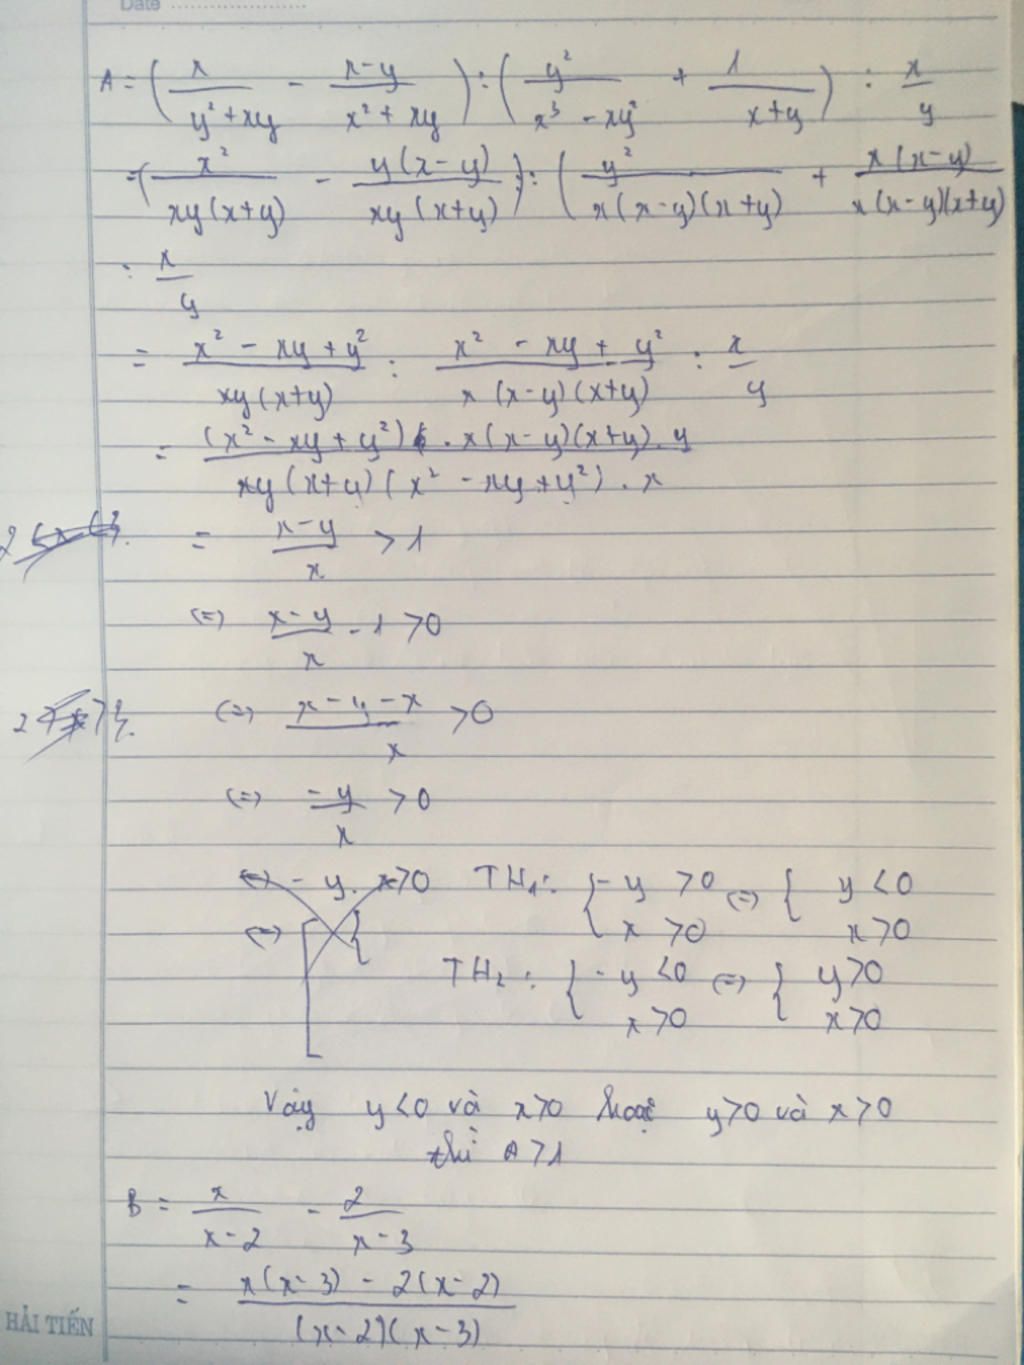 Date
A = ( x/(y²+xy) - (x-y)/(x²+xy) ) : ( y²/(x³-xy²) + 1/(x+y) ) : x/y
= ( x²/(xy(x+y)) - y(x-y)/(xy(x+y)) ) : ( y²/(x(x-y)(x+y)) + x(x-y)/(x(x-y)(x+y))
: x/y
= (x²-xy+y²)/(xy(x+y)) : (x²-xy+y²)/(x(x-y)(x+y)) : x/y
= ((x²-xy+y²) . x(x-y)(x+y) . y)/(xy(x+y)(x²-xy+y²) . x)
= (x-y)/x > 1
(=) (x-y)/x - 1 > 0
(=) (x-y-x)/x > 0
(=) -y/x > 0
(=) - y . x > 0 TH₁: { -y > 0 (=) { y < 0
(=) [ { x > 0 x > 0
TH₂: { -y < 0 (=) { y > 0
x > 0 x > 0
Vậy y < 0 và x > 0 hoặc y > 0 và x > 0
thì A > 1
B = x/(x-2) - 2/(x-3)
= (x(x-3) - 2(x-2))/((x-2)(x-3))
HẢI TIẾN